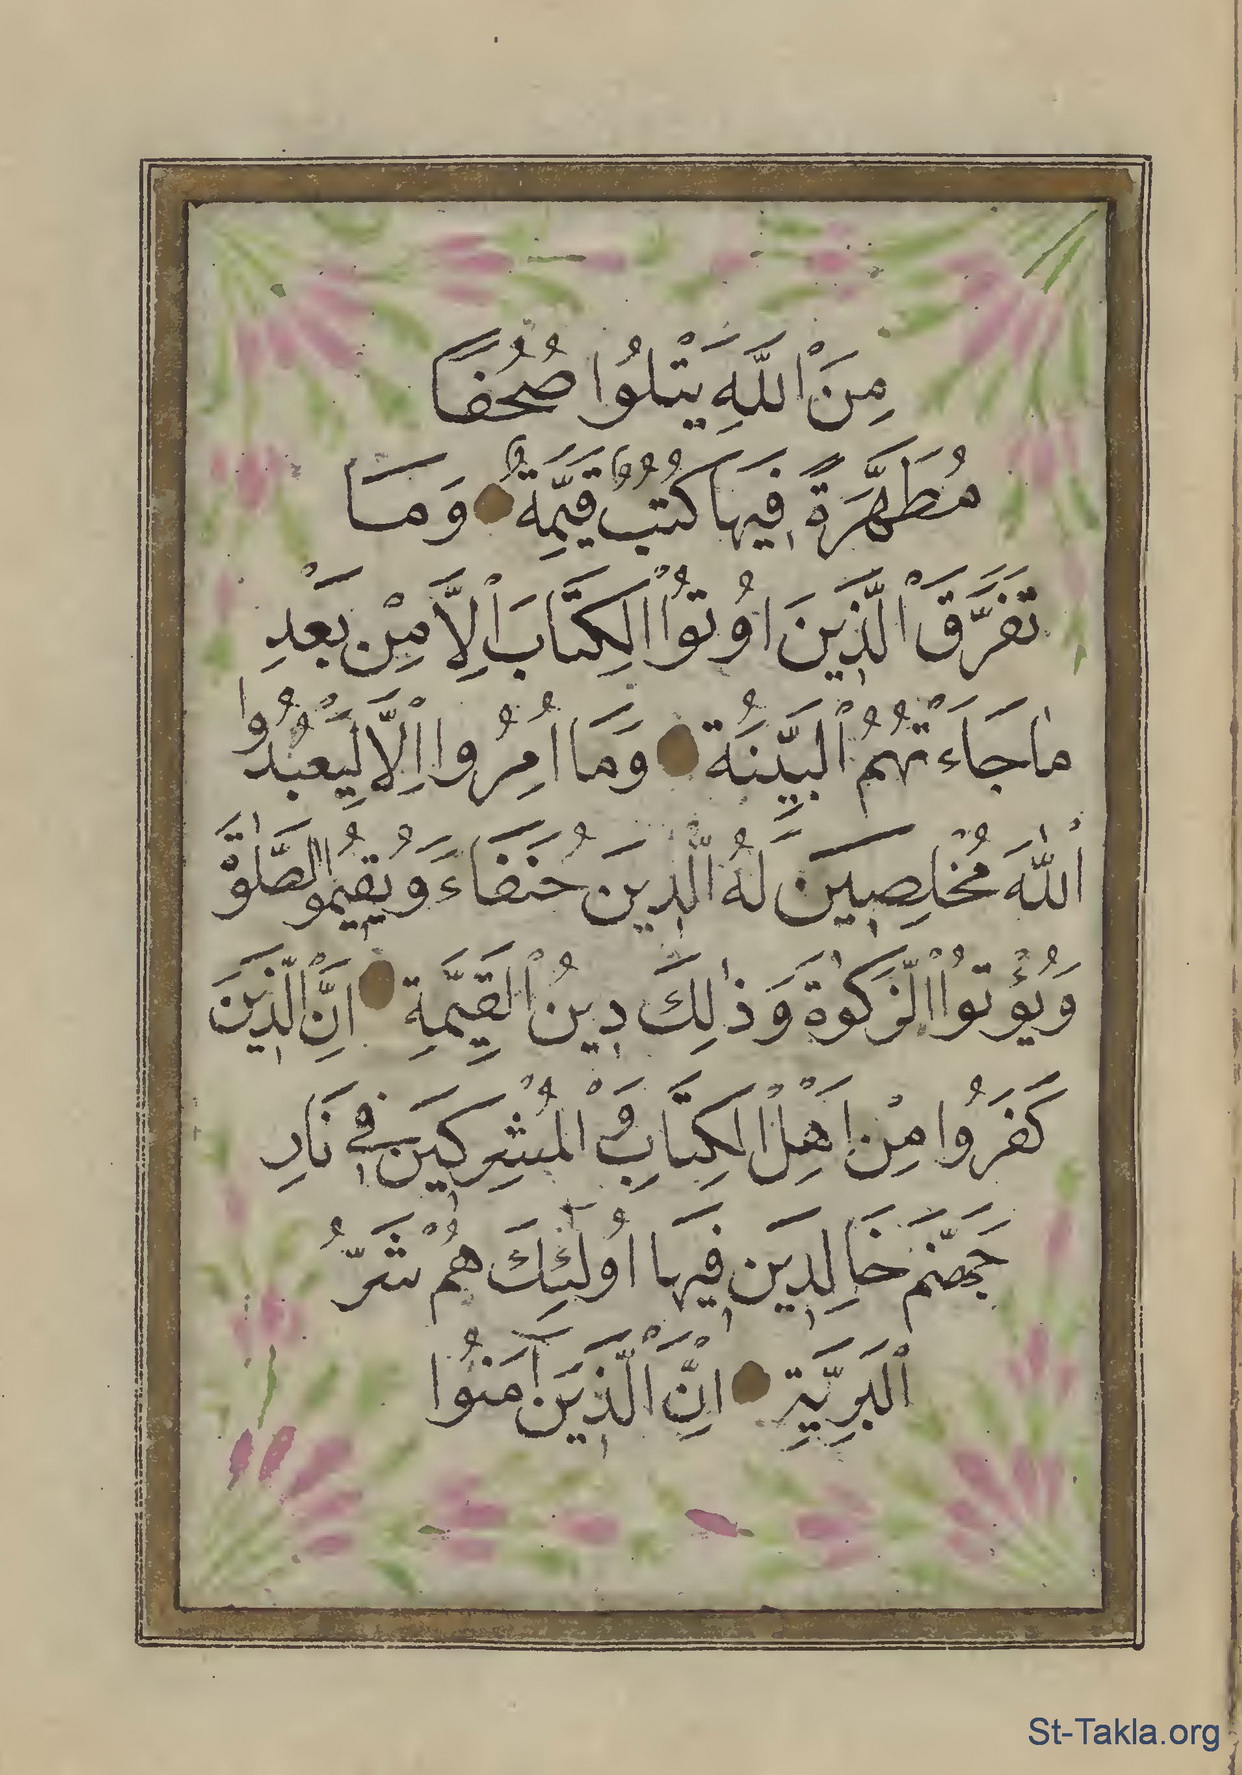 مِنَ اْللَّهِ يَتْلُوا صُحُفًا
مُطَهَّرَةً فِيهَا كُتُبٌ قَيِّمَةٌ وَمَا
تَفَرَّقَ اْلَّذِينَ اوُتوُا اْلكِتَابَ اِلَّا مِنْ بَعْدِ
مٰا جَاءَتْهُمُ اْلبَيِّنَةُ وَمَا اُمِرُوا اِلَّا لِيَعْبُدُوا
اْللّٰهَ مُخْلِصِينَ لَهُ الَّدِينَ حُنَفَاءَ وَيُقِيمُوا الصَّلٰوةَ
وَيُؤْتوُا اْلزَّكٰوةَ وَذٰلِكَ دِينُ اْلقَيِّمَةِ اِنَّ اْلَّذِينَ
كَفَرُوا مِنْ اَهْلِ اْلكِتَابِ وَاْلمُشْرِكِينَ فِي نَارِ
جَهَنَّمَ خَالِدِينَ فِيهَا اُولٰئِكَ هُمْ شَرُّ
اْلبَرِيَّةِ اِنَّ اْلَّذِينَ آمَنُوا
St-Takla.org